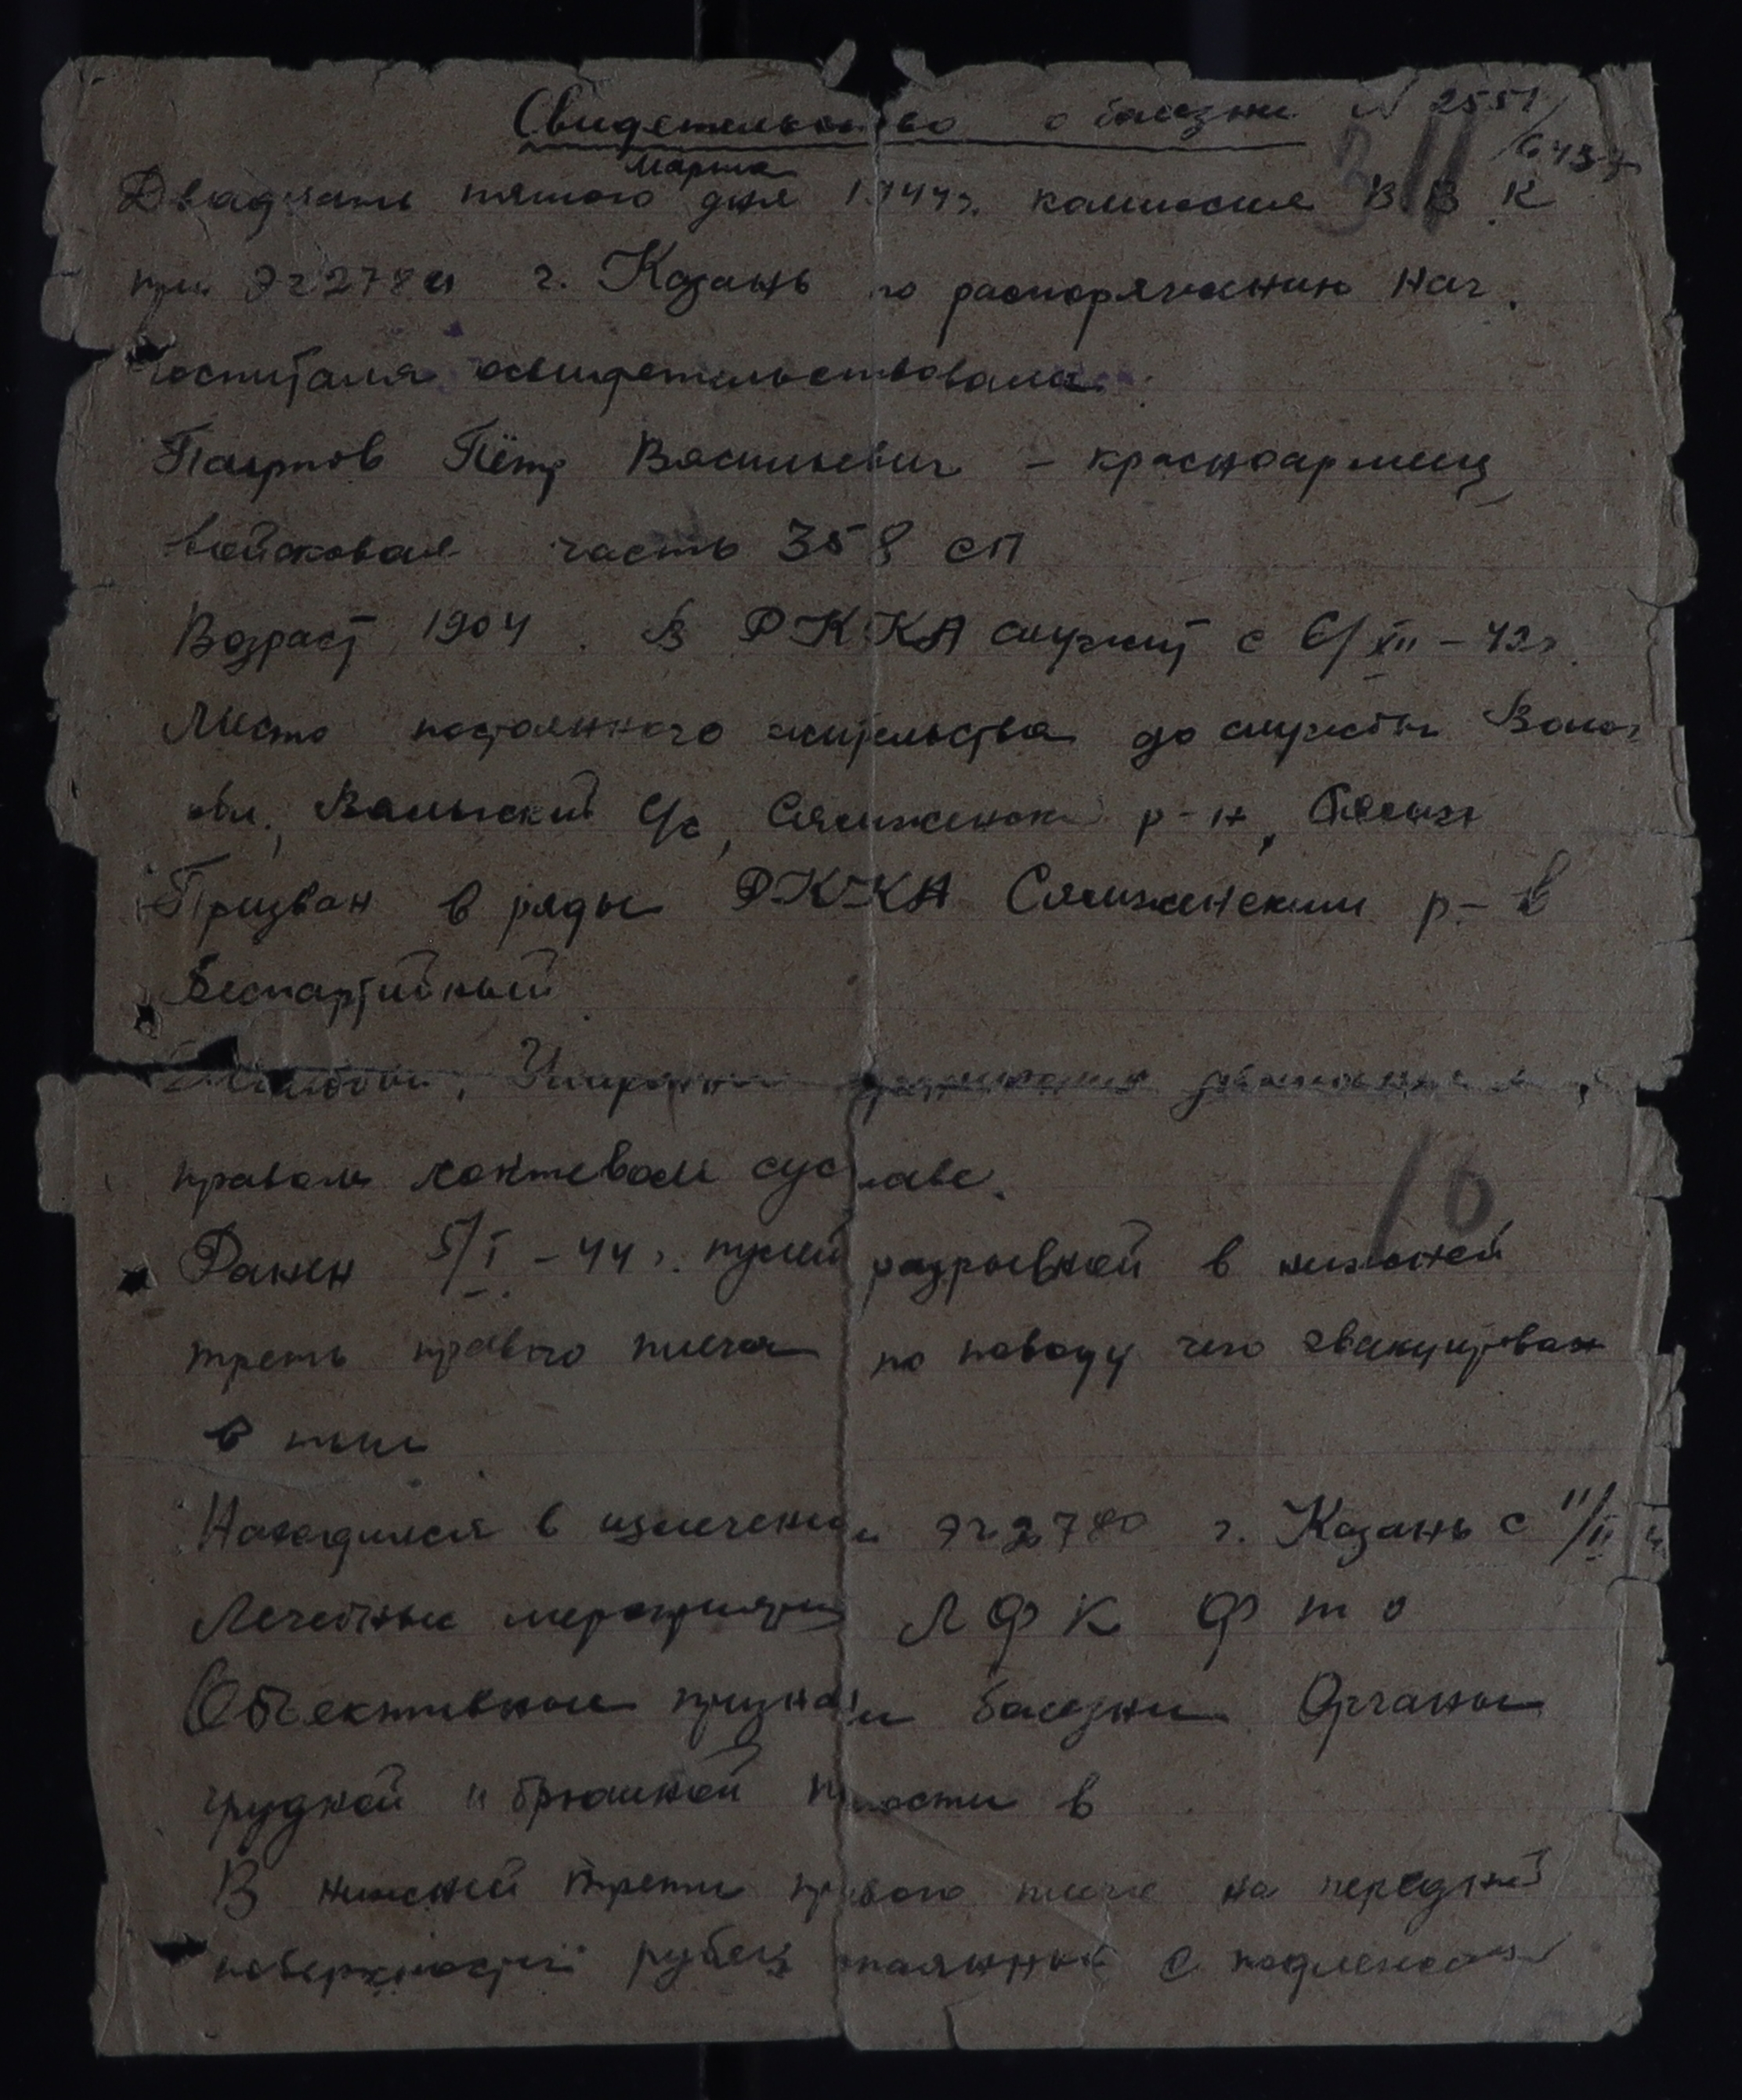 Свидетельство о болезни N 2551/6437
311
марта
Двадцать пятого дня 1944г. комиссия ВВК
при ЭГ 2780 г. Казань по распоряжению нач.
госпиталя освидетельствовала
Пётр Васильевич - красноармеец
войсковая часть 358 сп
Возраст 1904. В РККА служит с 6/XII-42г.
Место постоянного жительства до службы Волог
обл., с/с, Сямженск р-н,
Призван в ряды РККА Сямженским р-в
Беспартийный
правом локтевом суставе.
10
Ранен 5/I-44г. пулей разрывной в нижней
треть правого плеча по поводу чего эвакуирован
в тыл
Находился в излечении ЭГ 2780 г. Казань с 11/II
Лечебные мероприятия ЛФК ФТО
Объективные признаки болезни Органы
грудной и брюшной полости в
В нижней трети правого плеча на передней
поверхности рубец спаянный с подлежащ